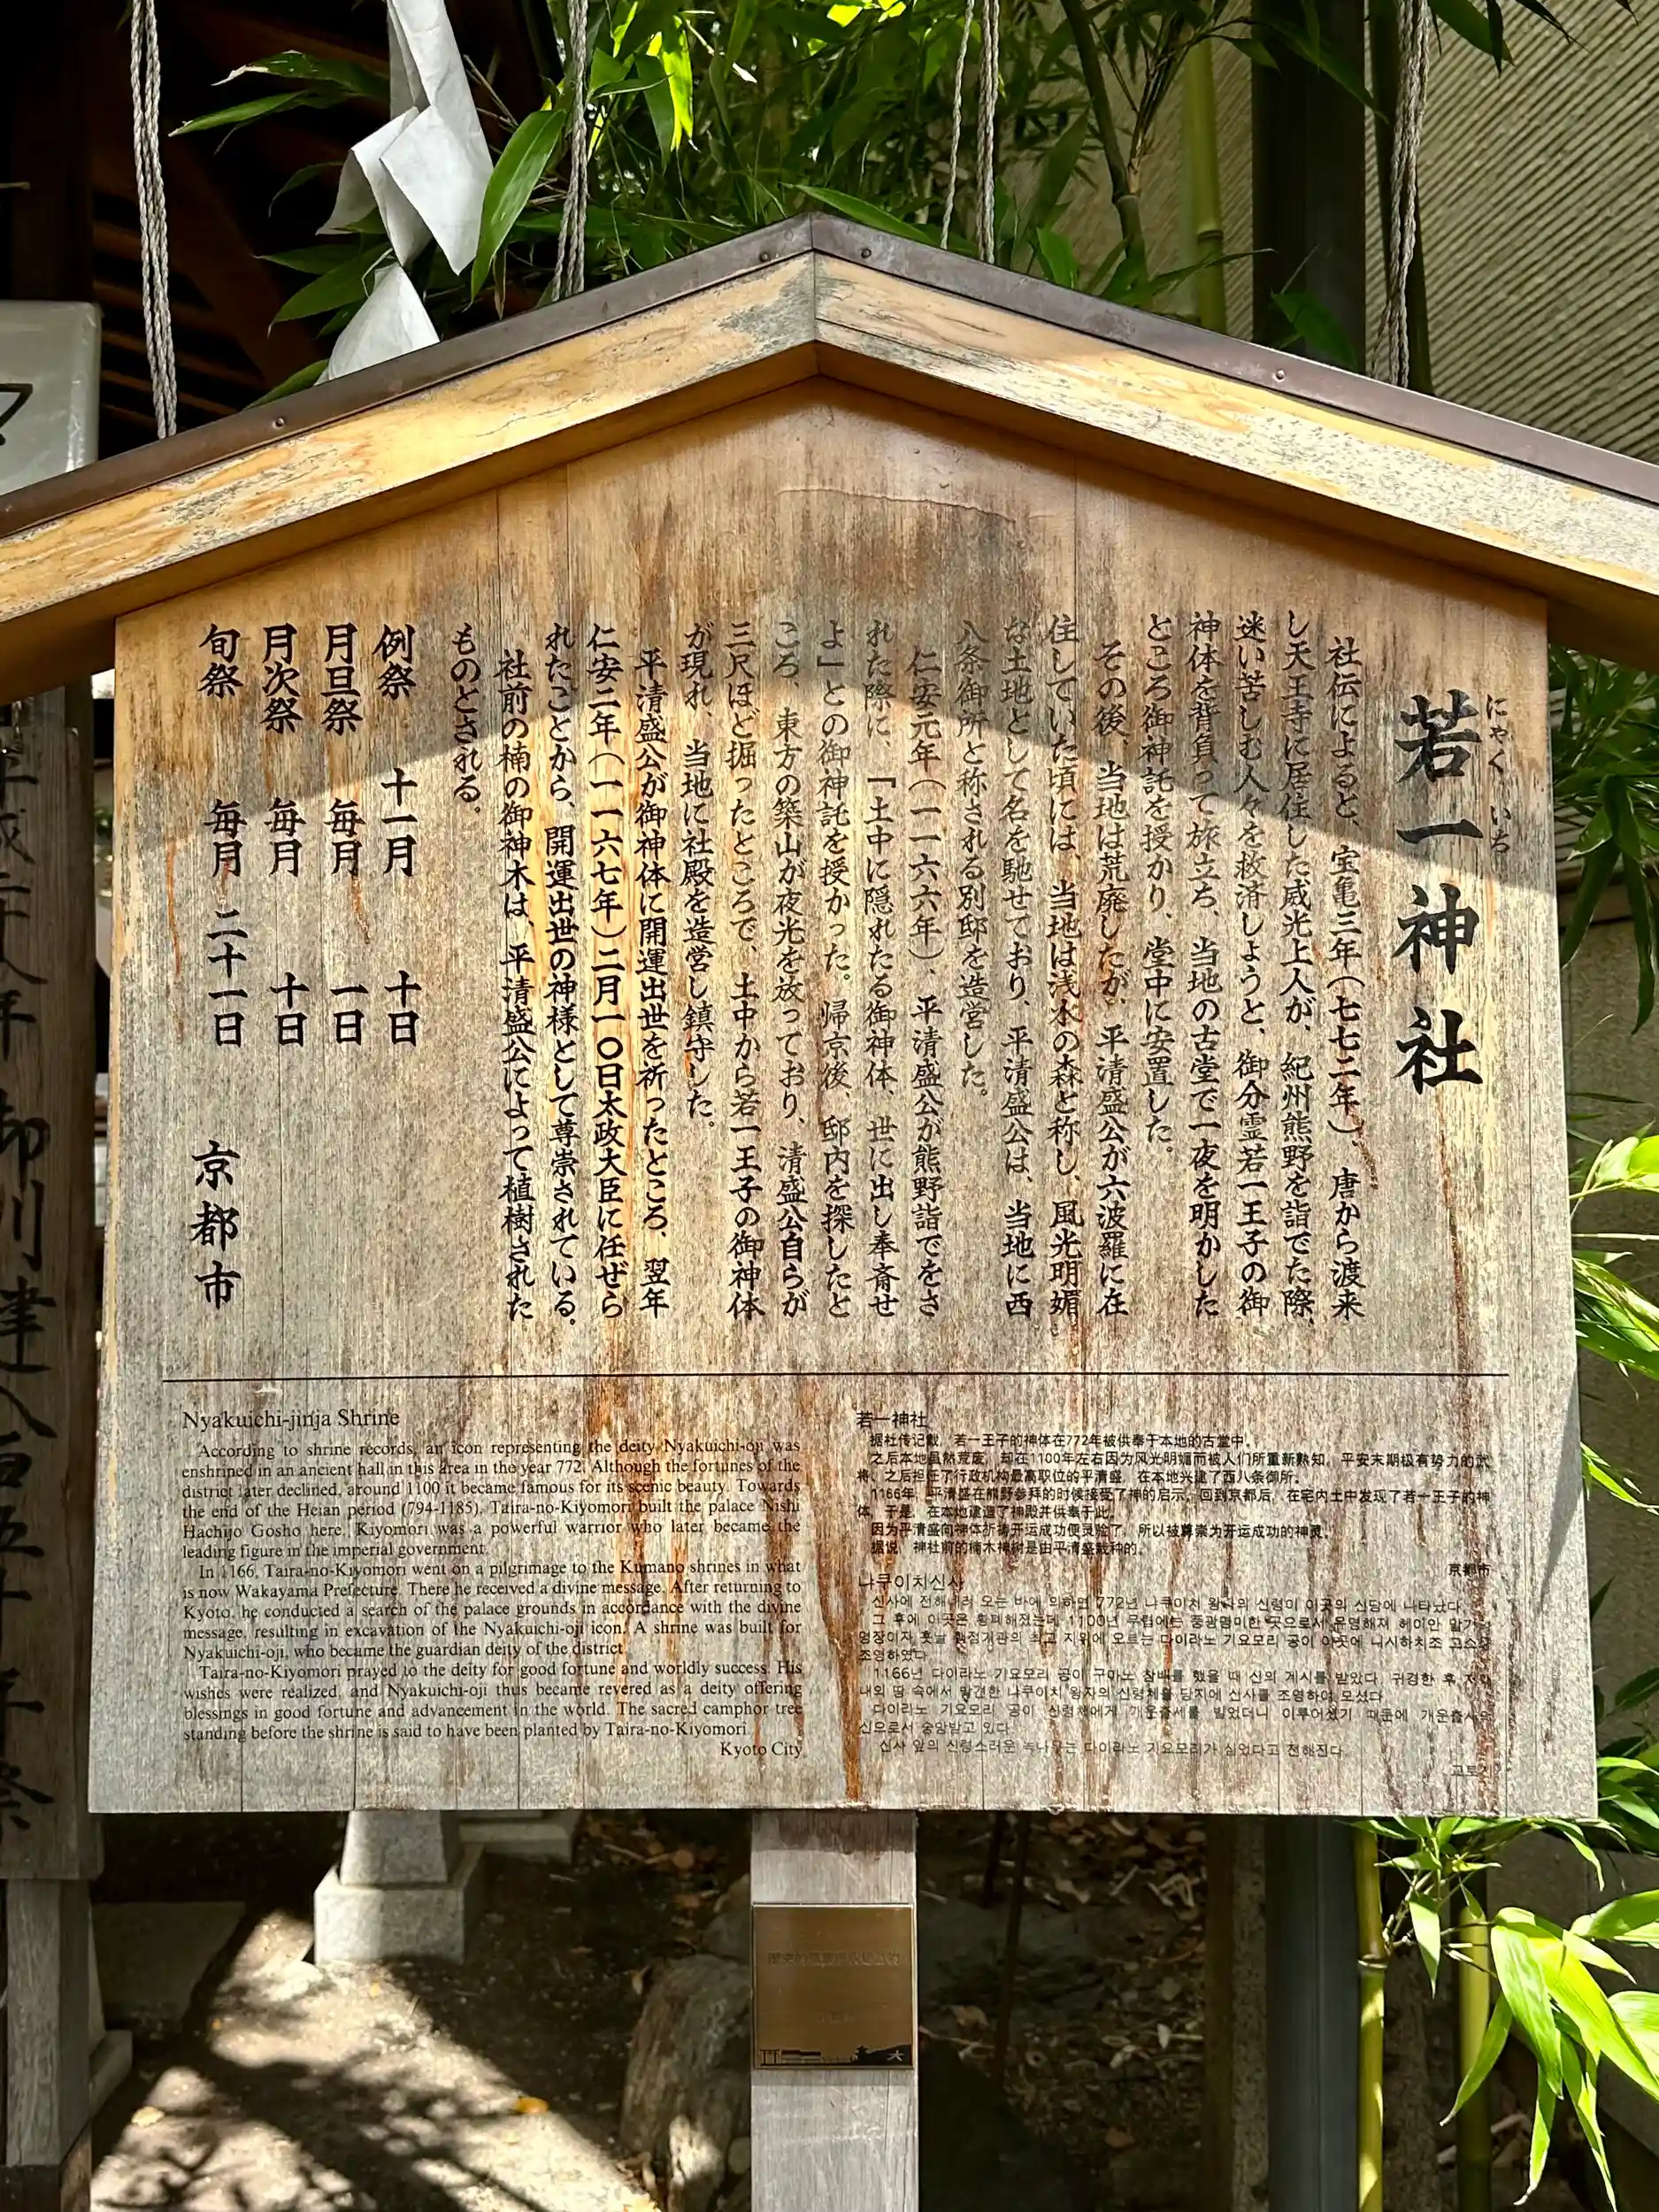 若一神社
にゃくいち
社伝によると、宝亀三年(七七二年)、唐から渡来
し天王寺に居住した威光上人が、紀州熊野を詣でた際、
迷い苦しむ人々を救済しようと、御分霊若一王子の御
神体を背負って旅立ち、当地の古堂で一夜を明かした
ところ御神託を授かり、堂中に安置した。
その後、当地は荒廃したが、平清盛公が六波羅に在
住していた頃には、当地は浅水の森と称し、風光明媚
な土地として名を馳せており、平清盛公は、当地に西
八条御所と称される別邸を造営した。
仁安元年(一一六六年)、平清盛公が熊野詣でをさ
れた際に、「土中に隠れたる御神体、世に出し奉斎せ
よ」との御神託を授かった。帰京後、邸内を探したと
ころ、東方の築山が夜光を放っており、清盛公自らが
三尺ほど掘ったところで、土中から若一王子の御神体
が現れ、当地に社殿を造営し鎮守した。
平清盛公が御神体に開運出世を祈ったところ、翌年
仁安二年(一一六七年)二月一〇日太政大臣に任ぜら
れたことから、開運出世の神様として尊崇されている。
社前の楠の御神木は、平清盛公によって植樹された
ものとされる。
例祭 十一月 十日
月旦祭 毎月 一日
月次祭 毎月 十日
旬祭 毎月 二十一日
京都市
Nyakuichi-jinja Shrine
According to shrine records, an icon representing the deity Nyakuichi-oji was
enshrined in an ancient hall in this area in the year 772. Although the fortunes of the
district later declined, around 1100 it became famous for its scenic beauty. Towards
the end of the Heian period (794-1185), Taira-no-Kiyomori built the palace Nishi
Hachijo Gosho here. Kiyomori was a powerful warrior who later became the
leading figure in the imperial government.
In 1166, Taira-no-Kiyomori went on a pilgrimage to the Kumano shrines in what
is now Wakayama Prefecture. There he received a divine message. After returning to
Kyoto, he conducted a search of the palace grounds in accordance with the divine
message, resulting in excavation of the Nyakuichi-oji icon. A shrine was built for
Nyakuichi-oji, who became the guardian deity of the district.
Taira-no-Kiyomori prayed to the deity for good fortune and worldly success. His
wishes were realized, and Nyakuichi-oji thus became revered as a deity offering
blessings in good fortune and advancement in the world. The sacred camphor tree
standing before the shrine is said to have been planted by Taira-no-Kiyomori.
Kyoto City
若一神社
据社传记载，若一王子的神体在772年被供奉于本地的古堂中。
之后本地虽然荒废，却在1100年左右因为风光明媚而被人们所重新熟知，平安末期极有势力的武
将、之后担任了行政机构最高职位的平清盛，在本地兴建了西八条御所。
1166年，平清盛在熊野参拜的时候接受了神的启示，回到京都后，在宅内土中发现了若一王子的神
体，于是，在本地建造了神殿并供奉于此。
因为平清盛向神体祈祷开运成功便灵验了，所以被尊崇为开运成功的神灵。
据说，神社前的楠木神树是由平清盛栽种的。
京都市
나쿠이치신사
신사에 전해내려 오는 바에 의하면 772년 나쿠이치 왕자의 신령이 이곳의 신당에 나타났다.
그 후에 이곳은 황폐해졌는데 1100년 무렵에는 풍광명미한 곳으로서 유명해져 헤이안 말기
명장이자 훗날 행정기관의 최고 지위에 오르는 다이라노 기요모리 공이 이곳에 니시하치조 고쇼를
조영하였다.
1166년 다이라노 기요모리 공이 구마노 참배를 했을 때 신의 계시를 받았다. 귀경한 후 저택
내의 땅 속에서 발견한 나쿠이치 왕자의 신령체를 당지에 신사를 조영하여 모셨다.
다이라노 기요모리 공이 신령체에게 개운출세를 빌었더니 이루어졌기 때문에 개운출세의
신으로서 숭앙받고 있다.
신사 앞의 신령스러운 녹나무는 다이라노 기요모리가 심었다고 전해진다.
교토시